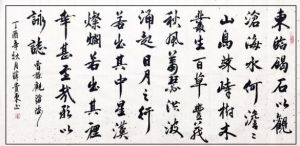 東臨碣石以觀
滄海水何澹澹
山島竦峙樹木
叢生百草豐茂
秋風蕭瑟洪波
涌起日月之行
若出其中星漢
燦爛若出其裡
幸甚至哉歌以
詠誌 曹操觀滄海
丁酉年秋月